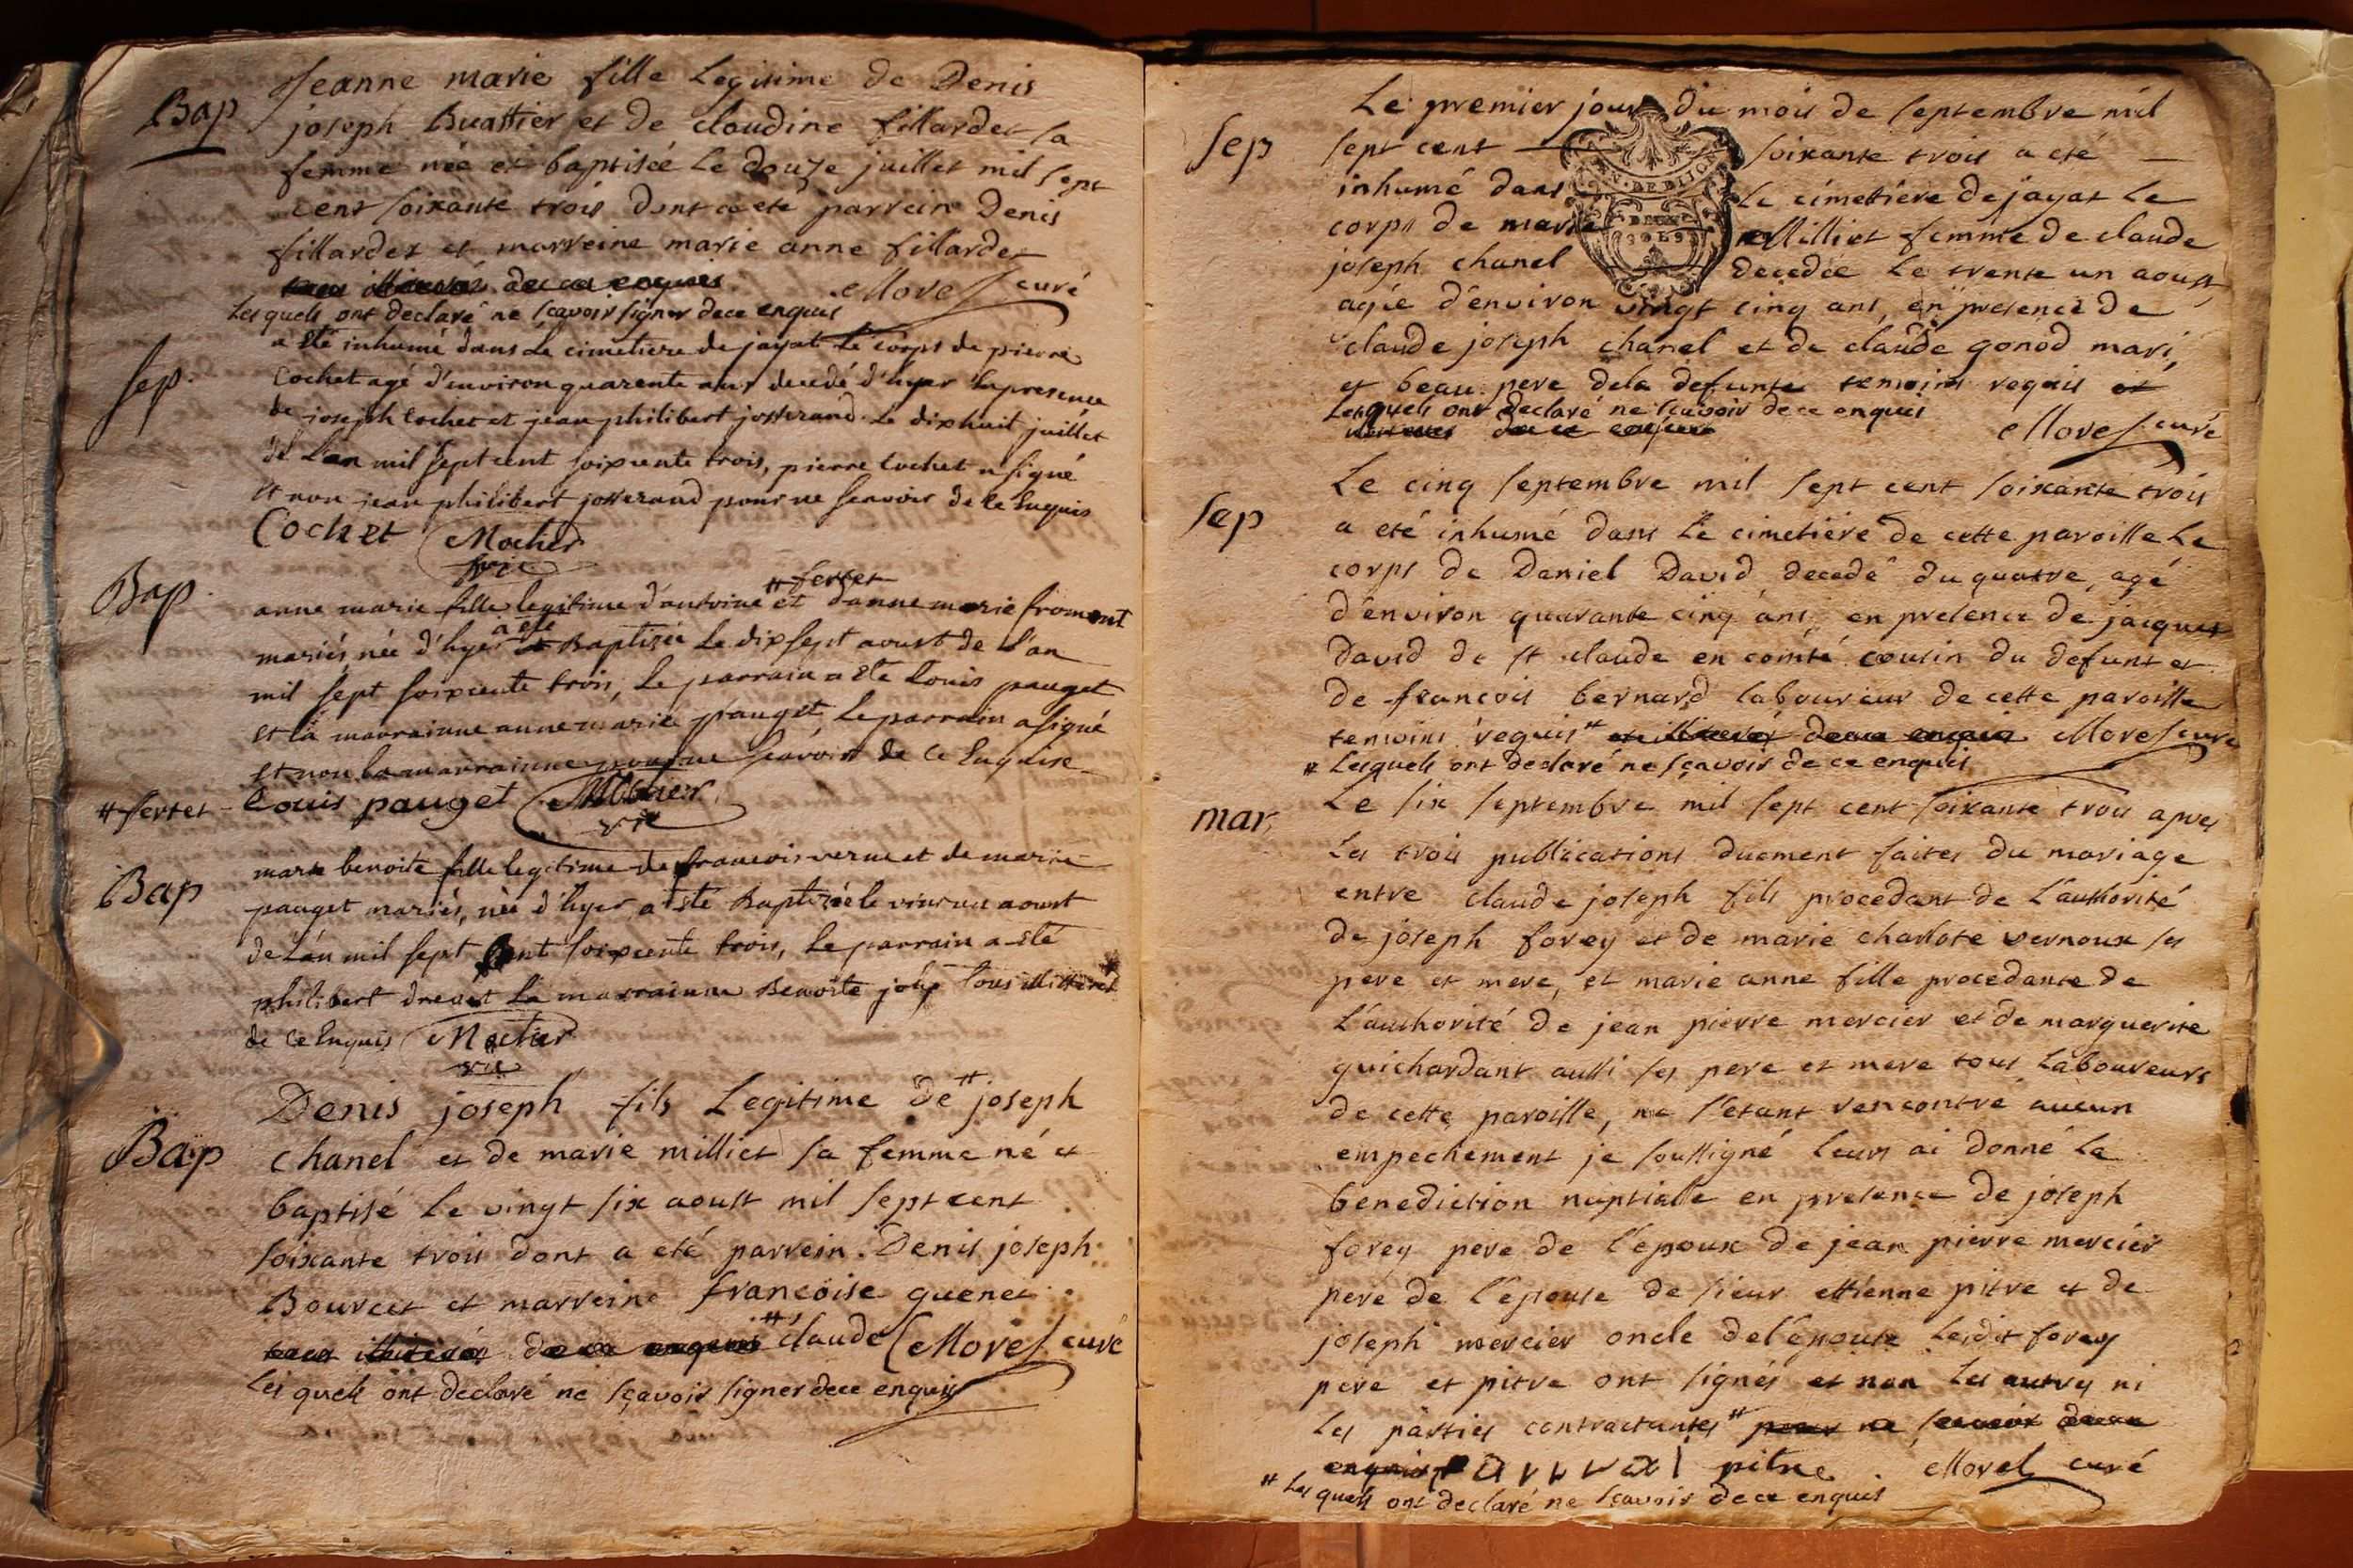 Bap
Jeanne marie fille Legitime de Denis
joseph Buattier et de claudine fillardet sa
femme née et baptisée Le douze juillet mil sept
cent soixante trois dont a eté parrein Denis
fillardet et marreine marie anne fillardet
de ce enquis Morel curé
Lesquels ont declaré ne sçavoir signer de ce enquis
Sep.
a été inhumé dans Le cimetiere de jayat Le corps de pierre
Cochet agé d'environ quarente ans decedé d'hyer En presence
de joseph Cochet et jean philibert josserand Le dixhuit juillet
de L'an mil sept cent soixcente trois, pierre Cochet a signé
et non jean philibert josserand pour ne scavoir de ce Enquis
Cochet Mochier
vic
Bap.
# fertet
anne marie fille legitime d'antoine et d'anne marie froment
a été
mariés, née d'hyer Baptizée Le dix sept aoust de L'an
mil sept soixcente trois, Le parrain a été Louis pauget
et la marrainne anne marie pauget, Le parrain a signé
et non la marrainne pour ne scavoir de ce Enquise
# fertet Louis pauget Mochier
vic
Bap
marie benoite fille legitime de francois verne et de marie
pauget mariés, née d'hyer a été Baptizée le vint un aoust
de L'an mil sept Cent soixcente trois, Le parrain a été
philibert drevet La marrainne Benoite joly tous illitterés
de ce Enquis Mochier
vic
Bap
Denis joseph fils Legitime de # joseph
chanel et de marie milliet sa femme né et
baptisé Le vingt six aoust mil sept cent
soixante trois dont a eté parrein Denis joseph
Bourcet et marreine francoise guenet
tous illiterés de ce enquis # claude Morel curé
Les quels ont declaré ne sçavoir signer de ce enquis
Sep
Le premier jour du mois de septembre mil
sept cent soixante trois a eté
inhumé dans Le cimettiere de jayat Le
corps de marie Milliet femme de claude
joseph chanel decedée Le trente un aoust
agée d'environ vingt cinq ans, en presence de
claude joseph chanel et de claude gonod mari,
et beau pere de la defunte temoins requis et
Lesquels ont declaré ne sçavoir de ce enquis
de ce enquis Morel curé
Sep
Le cinq septembre mil sept cent soixante trois
a eté inhumé dans Le cimetiére de cette paroisse Le
corps de Daniel David decedé du quatre, agé
d'environ quarante cinq ans, en presence de jacques
David de st claude en comté cousin du defunt et
de francois bernard laboureur de cette paroisse
temoins requis # et illiterés de ce enquis Morel curé
# Lesquels ont declaré ne sçavoir de ce enquis
mar,
Le six septembre mil sept cent soixante trois apres
Les trois publications duement faites du mariage
entre claude joseph fils procedant de L'authorité
de joseph forey et de marie charlote vernoux ses
pere et mere, et marie anne fille procedante de
L'authorité de jean pierre mercier et de marguerite
guichardant aussi ses pere et mere tous Laboureurs
de cette paroisse, ne s'etant rencontré aucun
empechement je soussigné leurs ai donné La
benediction nuptialle en presence de joseph
forey pere de l'epoux de jean pierre mercier
pere de l'epouse de sieur ettienne pitre et de
joseph mercier oncle de l'epouse Ledit forey
pere et pitre ont signés et non Les autres ni
Les parties contractantes # pour ne scavoir de ce
enquis pitre. Morel curé
# Les quels ont declaré ne sçavoir de ce enquis